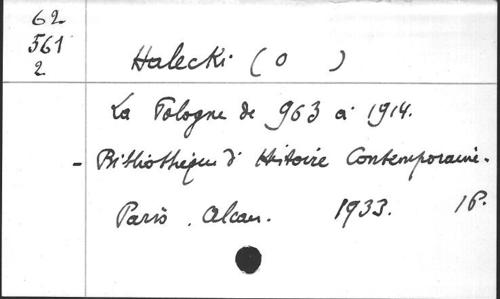 62
561
2
Halecki (O )
La Pologne de 963 à 1914.
- Bibliothèque d'Histoire Contemporaine.
Paris. Alcan. 1933. 1P.